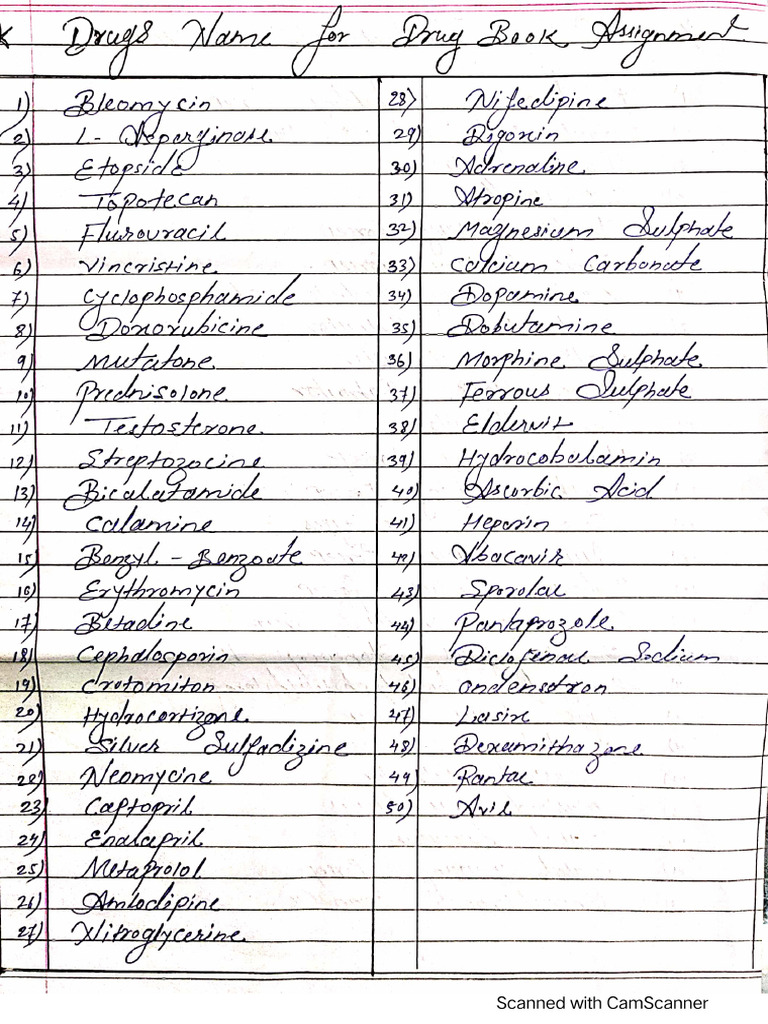 Drugs Name for Drug Book Assignment
1) Bleomycin
2) L- Asperginase
3) Etopside
4) Topotecan
5) Flurouracil
6) Vincristine
7) Cyclophosphamide
8) Doxorubicine
9) Mutatone
10) Prednisolone
11) Testosterone
12) Streptozocine
13) Bicalutamide
14) Calamine
15) Benzyl - Benzoate
16) Erythromycin
17) Betadine
18) Cephalosporin
19) Crotomiton
20) Hydrocortizone
21) Silver Sulfadizine
22) Neomycine
23) Captopril
24) Enalapril
25) Metaprolol
26) Amlodipine
27) Nitroglycerine
28) Nifedipine
29) Digoxin
30) Adrenaline
31) Atropine
32) Magnesium Sulphate
33) Calcium Carbonate
34) Dopamine
35) Dobutamine
36) Morphine Sulphate
37) Ferrous Sulphate
38) Eldervit
39) Hydrocobalamin
40) Ascorbic Acid
41) Heparin
42) Abacavir
43) Sporolac
44) Pantaprozole
45) Diclofenac Sodium
46) Ondensetron
47) Lasix
48) Dexamithazone
49) Rantac
50) Avil
Scanned with CamScanner